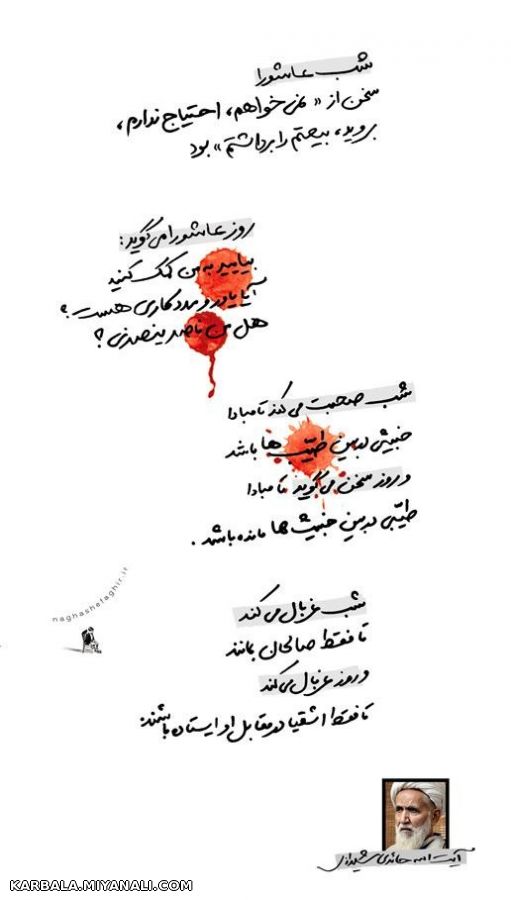 شب عاشورا
سخن از « نمی‌خواهم، احتیاج ندارم،
بروید، بیعتم را برداشتم» بود
روز عاشورا می‌گوید:
بیایید به من کمک کنید
آیا یاور و مددکاری هست؟
هل من ناصر ینصرنی؟
شب صحبت می‌کند تا مبادا
خبیثی در بین طیّب‌ها باشد
و روز سخن می‌گوید تا مبادا
طیّبی در بین خبیث‌ها مانده باشد.
شب غربال می‌کند
تا فقط صالحان بمانند
و روز غربال می‌کند
تا فقط اشقیا در مقابل او ایستاده باشند:
naghashefaghir.ir
آیت الله حائری شیرازی
KARBALA.MIYANALI.COM